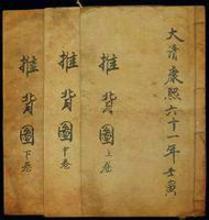 大清康熙六十一年壬寅
推背圖上卷
推背圖中卷
推背圖下卷